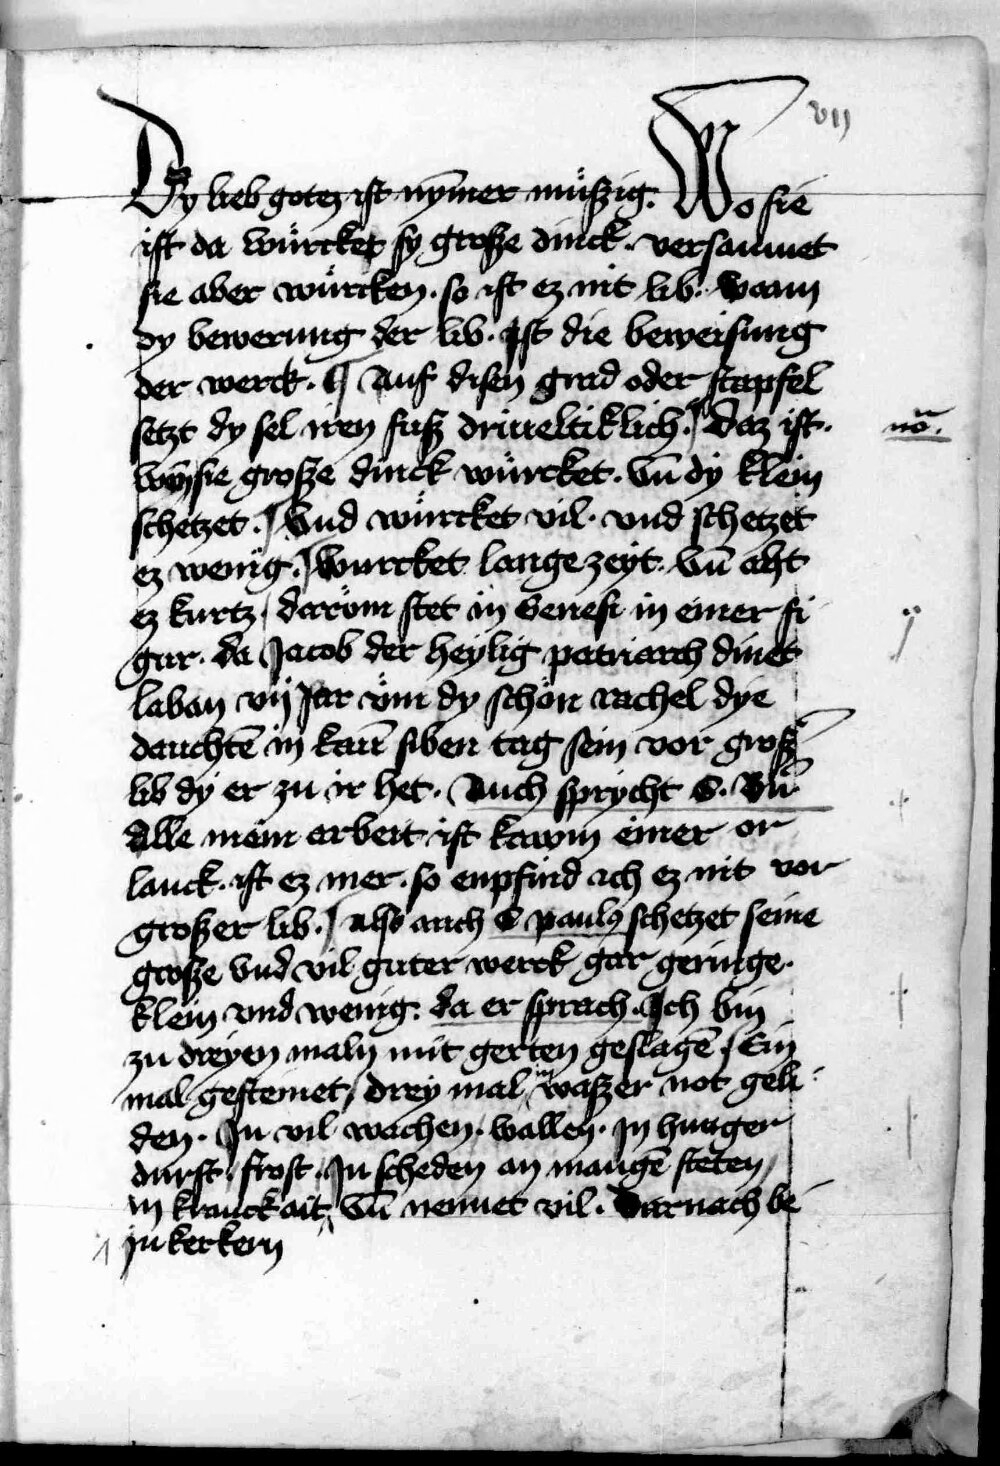 vij
Dy lieb gotez ist nym̄er müszig. Wo sie
ist da würcket sy grosze dinck. versaumet
sie aber würcken. so ist ez nit lib. waan
dy bewerung der lib. Ist die beweisung
der werck. ¶ Auf disen grad oder stapfel
setzt dy sel iren fusz driueltiklich. Daz ist.
no᷑.
wen̄ sie grosze dinck würcket. vn̄ dy klein
schetzet. Vnd würcket vil. vnd schetzet
ez wenig. Wurcket lange zeyt. Vn̄ aht
ez kurtz. daröm stet in Genesi in einer fi
gur. da Jacob der heylig patriarch dinet
laban vij Jar vöm dy schön rachel dye
dauchtē in kaū siben tag sein vor grosz̄
lib dy er zu ir het. Auch sprycht S. Bn̄.
Alle mein arbeit ist kawm einer or
lanck. ist ez mer. so enpfind ich ez nit vor
groszer lib. Also auch S paulꝯ schetzet seine
grosze vnd vil guter werck gar geringe.
klein vnd wenig. da er sprach. Ich bin
zu dreyen maln mit gerten geslagē Ein
mal gesteinet, drey mal in waszer not geli
den. In vil wachen. vallen. in hunger
durst. frost. In scheden an mangē steten
in kranckait, Vn̄ nennet vil. Darnach be
in kerkern